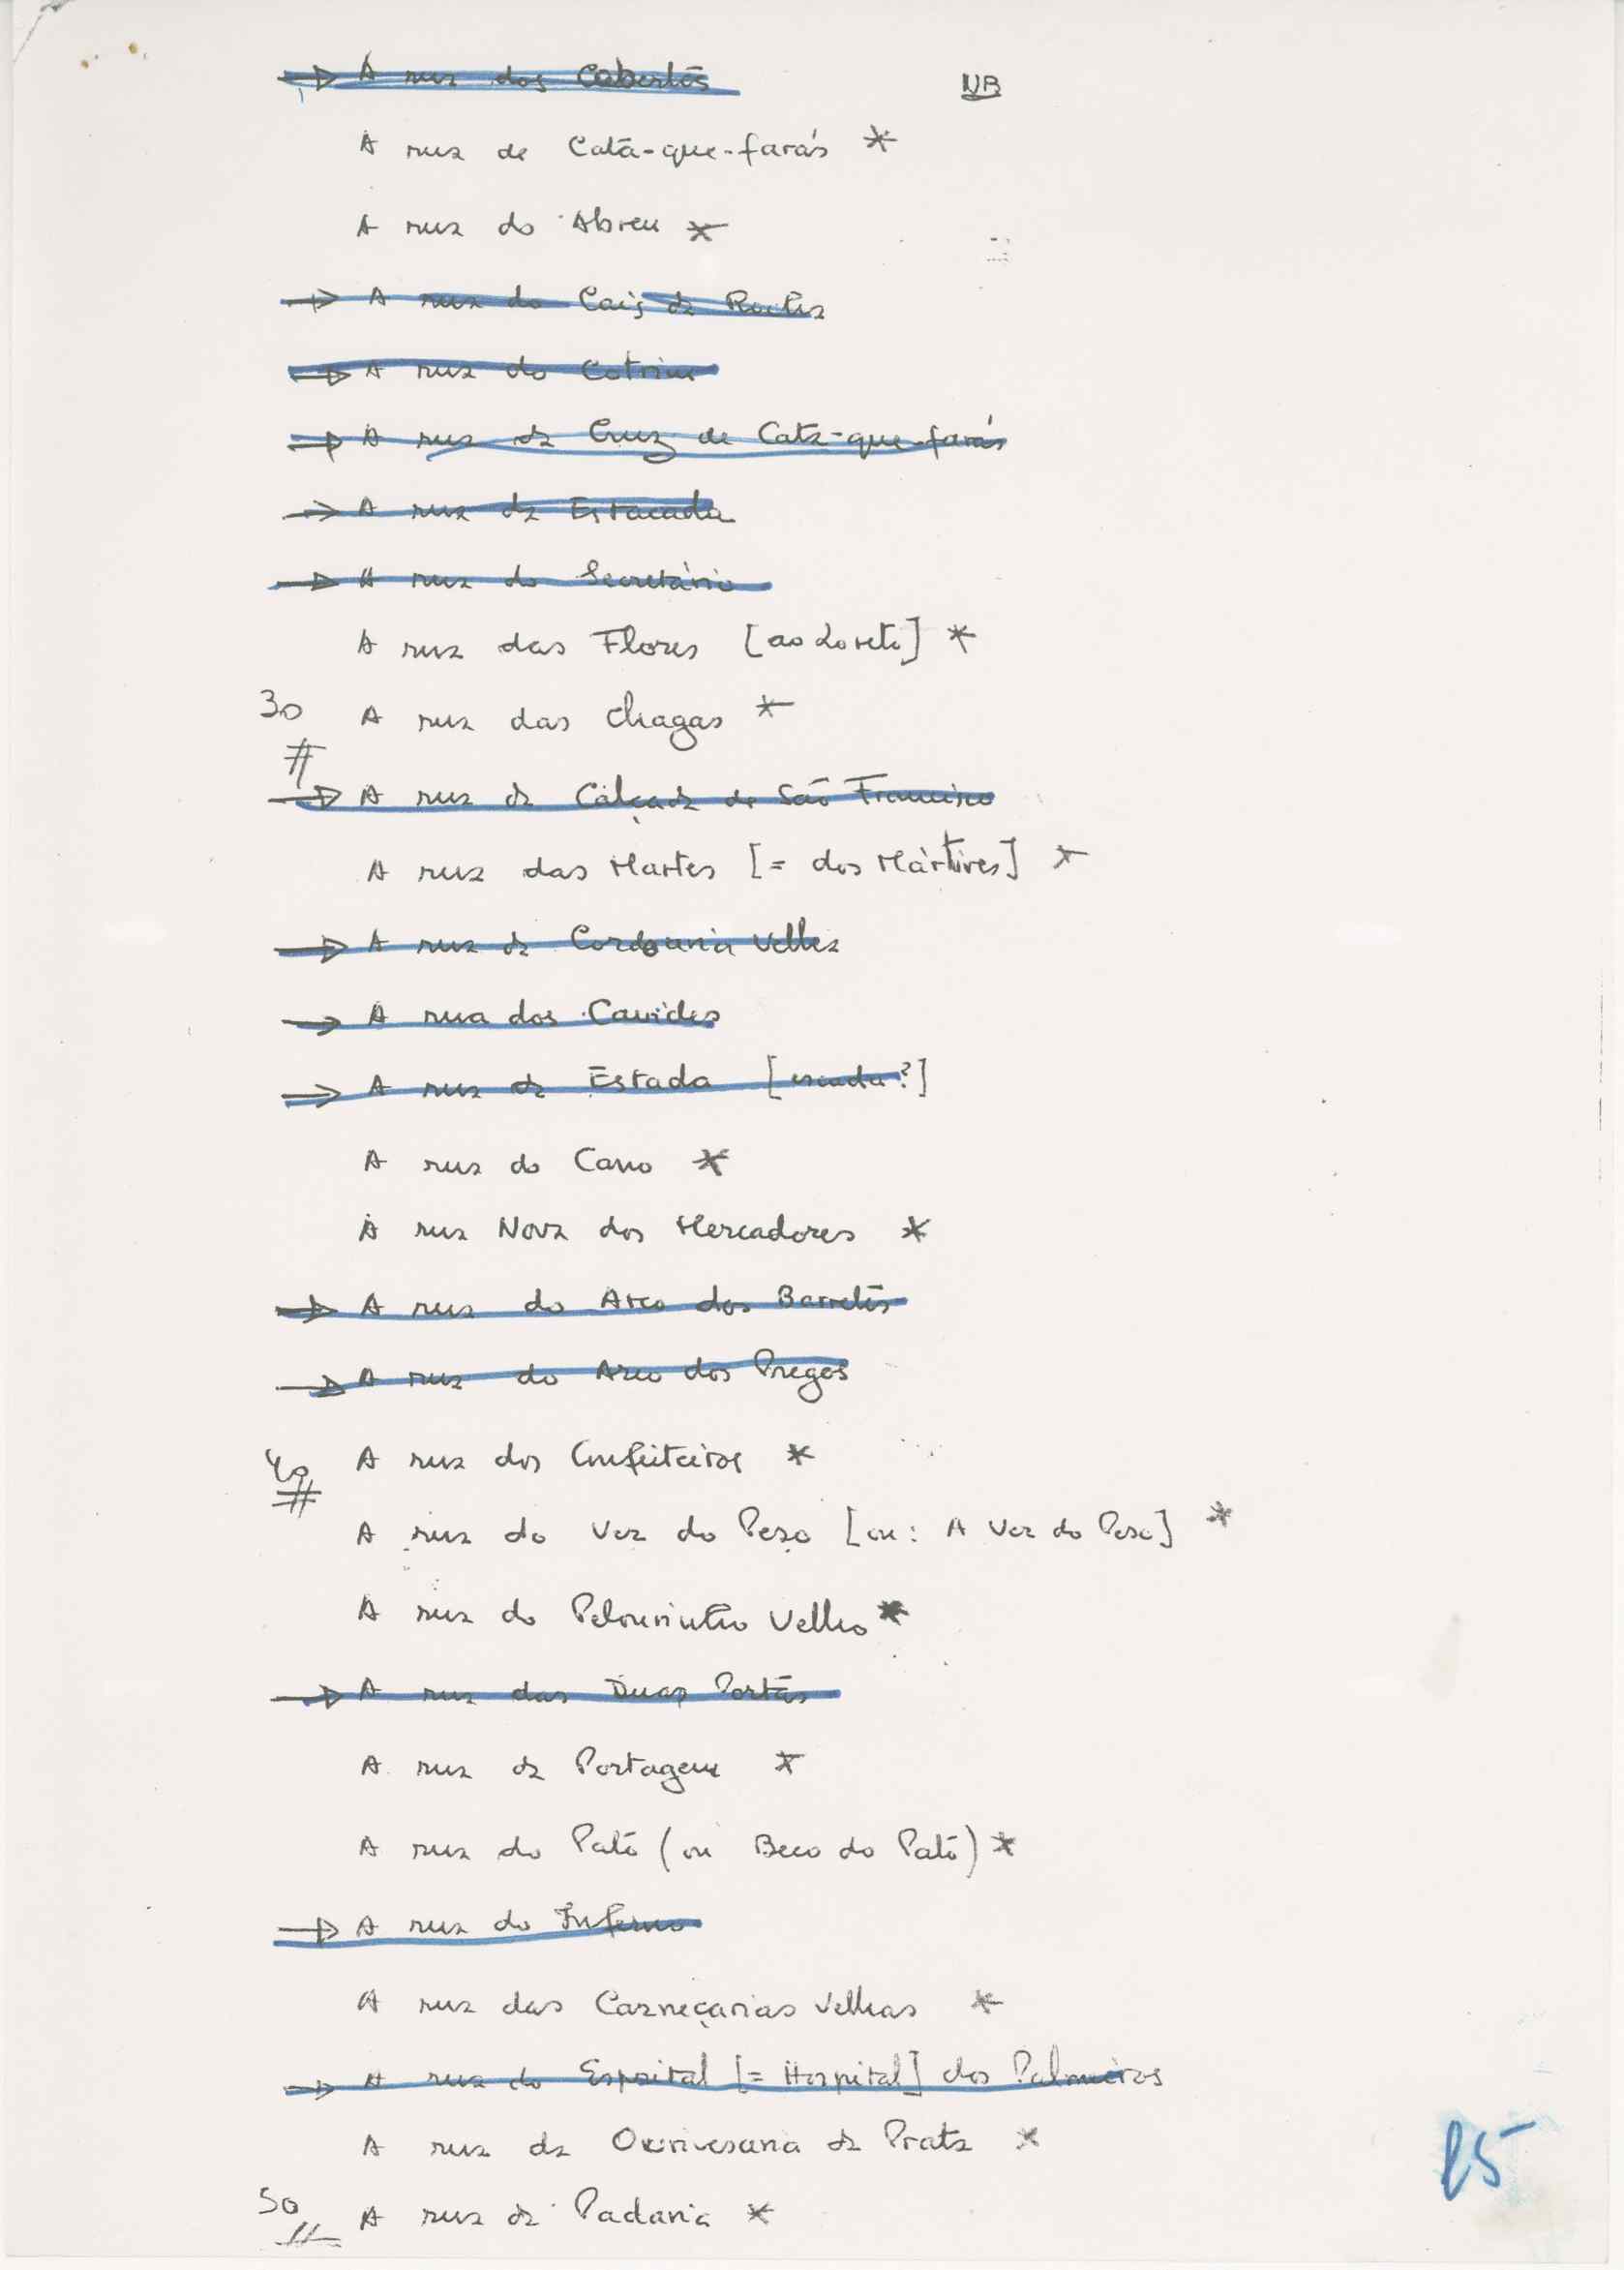 → A rua dos Cobertos
NB
A rua de Cata-que-farás *
A rua do Abreu *
→ A rua do Cais da Rocha
→ A rua do Cotrim
→ A rua da Cruz de Cata-que-farás
→ A rua da Estacada
→ A rua do Secretário
A rua das Flores [ao Loreto] *
30 A rua das Chagas *
#
→ A rua da Calçada de São Francisco
A rua das Martes [= dos Mártires] *
→ A rua da Cordoaria Velha
→ A rua dos Cavides
→ A rua da Estada [escada?]
A rua do Cano *
A rua Nova dos Mercadores *
→ A rua do Arco dos Barretes
→ A rua do Arco dos Pregos
40 A rua dos Confeiteiros *
#
A rua do Ver do Peso [ou: A Ver do Peso] *
A rua do Pelourinho Velho *
→ A rua das Duas Portas
A rua da Portagem *
A rua do Pato (ou Beco do Pato) *
→ A rua do Inferno
A rua das Carneçarias Velhas *
→ A rua do Esprital [= Hospital] dos Palmeiros
A rua da Ourivesaria da Prata *
50 A rua da Padaria *
25